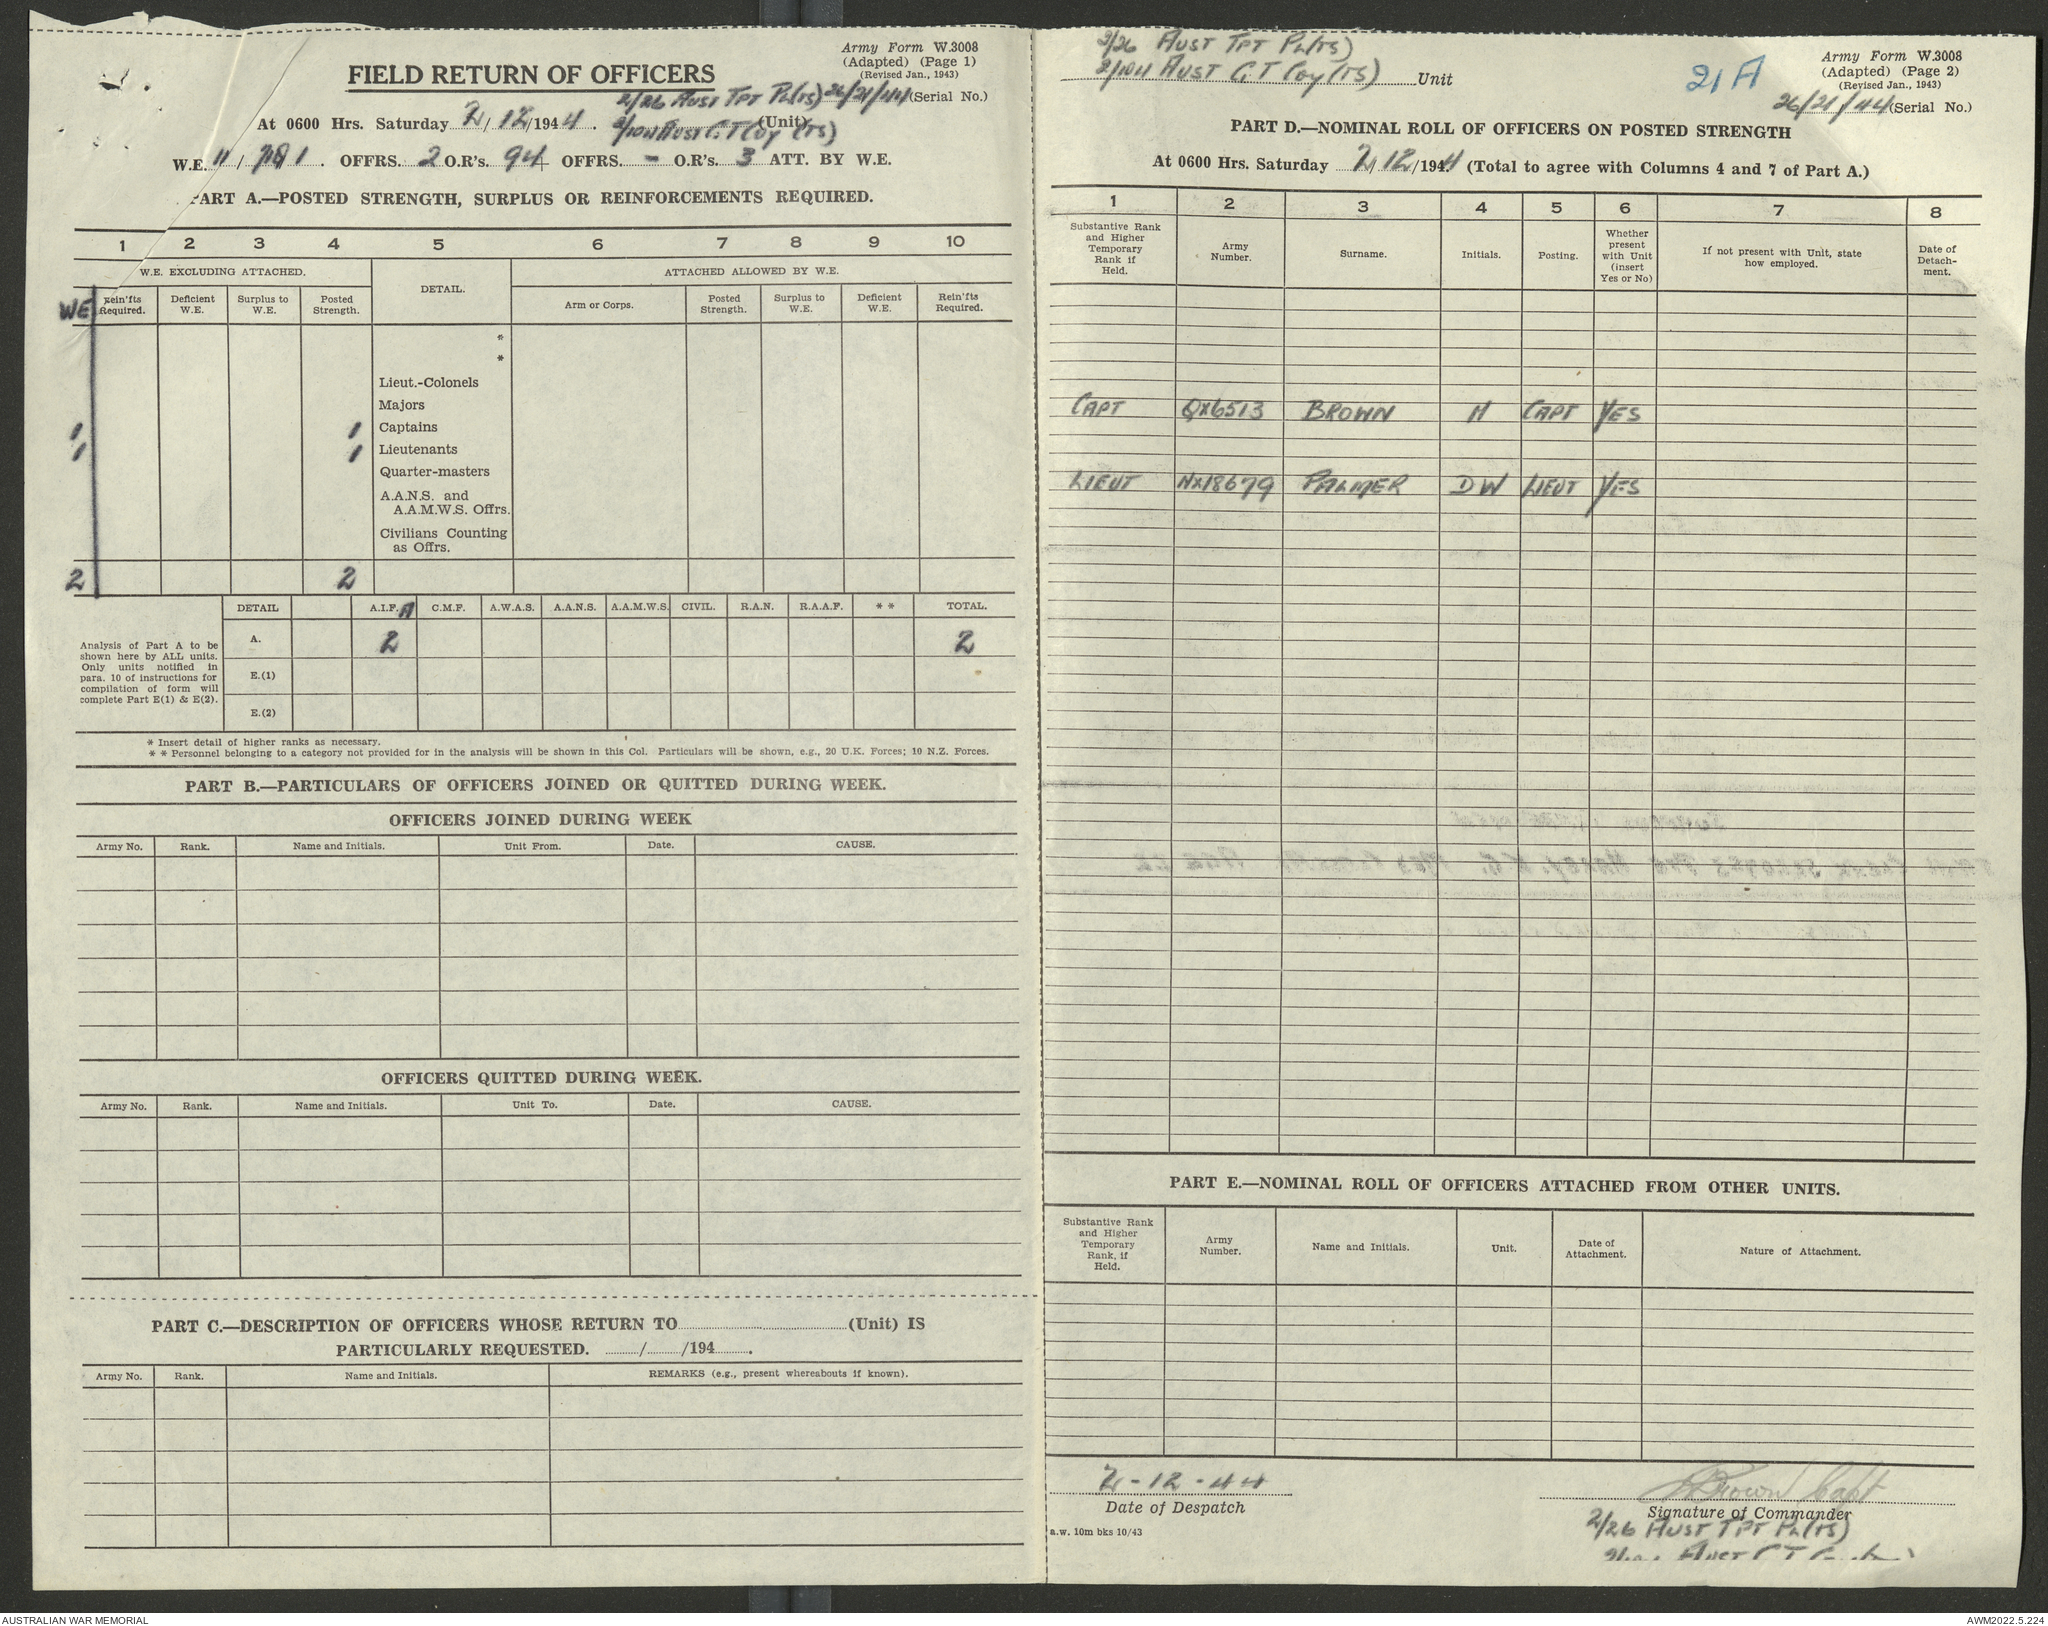 Army Form W.3008
(Adapted) (Page 1)
(Revised Jan., 1943)
FIELD RETURN OF OFFICERS
2/26 AUST TPT PL(TS) 26/21/44 (Serial No.)
At 0600 Hrs. Saturday 2/12/1944.
2/104 AUST G.T Coy (TS) (Unit)
W.E. 11 / . OFFRS. 2 O.R's. 94 OFFRS. - O.R's. 3 ATT. BY W.E.
PART A.—POSTED STRENGTH, SURPLUS OR REINFORCEMENTS REQUIRED.
1 2 3 4 5 6 7 8 9 10
W.E. EXCLUDING ATTACHED. DETAIL. ATTACHED ALLOWED BY W.E.
WE Rein'fts Required. Deficient W.E. Surplus to W.E. Posted Strength. Arm or Corps. Posted Strength. Surplus to W.E. Deficient W.E. Rein'fts Required.
*
*
Lieut.-Colonels
Majors
1 1 Captains
1 1 Lieutenants
Quarter-masters
A.A.N.S. and
A.A.M.W.S. Offrs.
Civilians Counting
as Offrs.
2 2
DETAIL A.I.F. A C.M.F. A.W.A.S. A.A.N.S. A.A.M.W.S. CIVIL. R.A.N. R.A.A.F. * * TOTAL.
Analysis of Part A to be
shown here by ALL units.
Only units notified in
para. 10 of instructions for
compilation of form will
complete Part E(1) & E(2).
A. 2 2
E.(1)
E.(2)
* Insert detail of higher ranks as necessary.
* * Personnel belonging to a category not provided for in the analysis will be shown in this Col. Particulars will be shown, e.g., 20 U.K. Forces; 10 N.Z. Forces.
PART B.—PARTICULARS OF OFFICERS JOINED OR QUITTED DURING WEEK.
OFFICERS JOINED DURING WEEK
Army No. Rank. Name and Initials. Unit From. Date. CAUSE.
OFFICERS QUITTED DURING WEEK.
Army No. Rank. Name and Initials. Unit To. Date. CAUSE.
PART C.—DESCRIPTION OF OFFICERS WHOSE RETURN TO (Unit) IS
PARTICULARLY REQUESTED. / /194 .
Army No. Rank. Name and Initials. REMARKS (e.g., present whereabouts if known).
2/26 AUST TPT PL(TS)
2/104 AUST G.T Coy (TS) Unit
21A
Army Form W.3008
(Adapted) (Page 2)
(Revised Jan., 1943)
26/21/44 (Serial No.)
PART D.—NOMINAL ROLL OF OFFICERS ON POSTED STRENGTH
At 0600 Hrs. Saturday 2/12/1944 (Total to agree with Columns 4 and 7 of Part A.)
1 2 3 4 5 6 7 8
Substantive Rank and Higher Temporary Rank if Held. Army Number. Surname. Initials. Posting. Whether present with Unit (insert Yes or No) If not present with Unit, state how employed. Date of Detach-ment.
CAPT QX6513 BROWN H CAPT YES
LIEUT NX18679 PALMER DW LIEUT YES
PART E.—NOMINAL ROLL OF OFFICERS ATTACHED FROM OTHER UNITS.
Substantive Rank and Higher Temporary Rank, if Held. Army Number. Name and Initials. Unit. Date of Attachment. Nature of Attachment.
2-12-44
Date of Despatch
a.w. 10m bks 10/43
HBrown Capt
Signature of Commander
2/26 AUST TPT PL(TS)
AUST G T
AUSTRALIAN WAR MEMORIAL
AWM2022.5.224